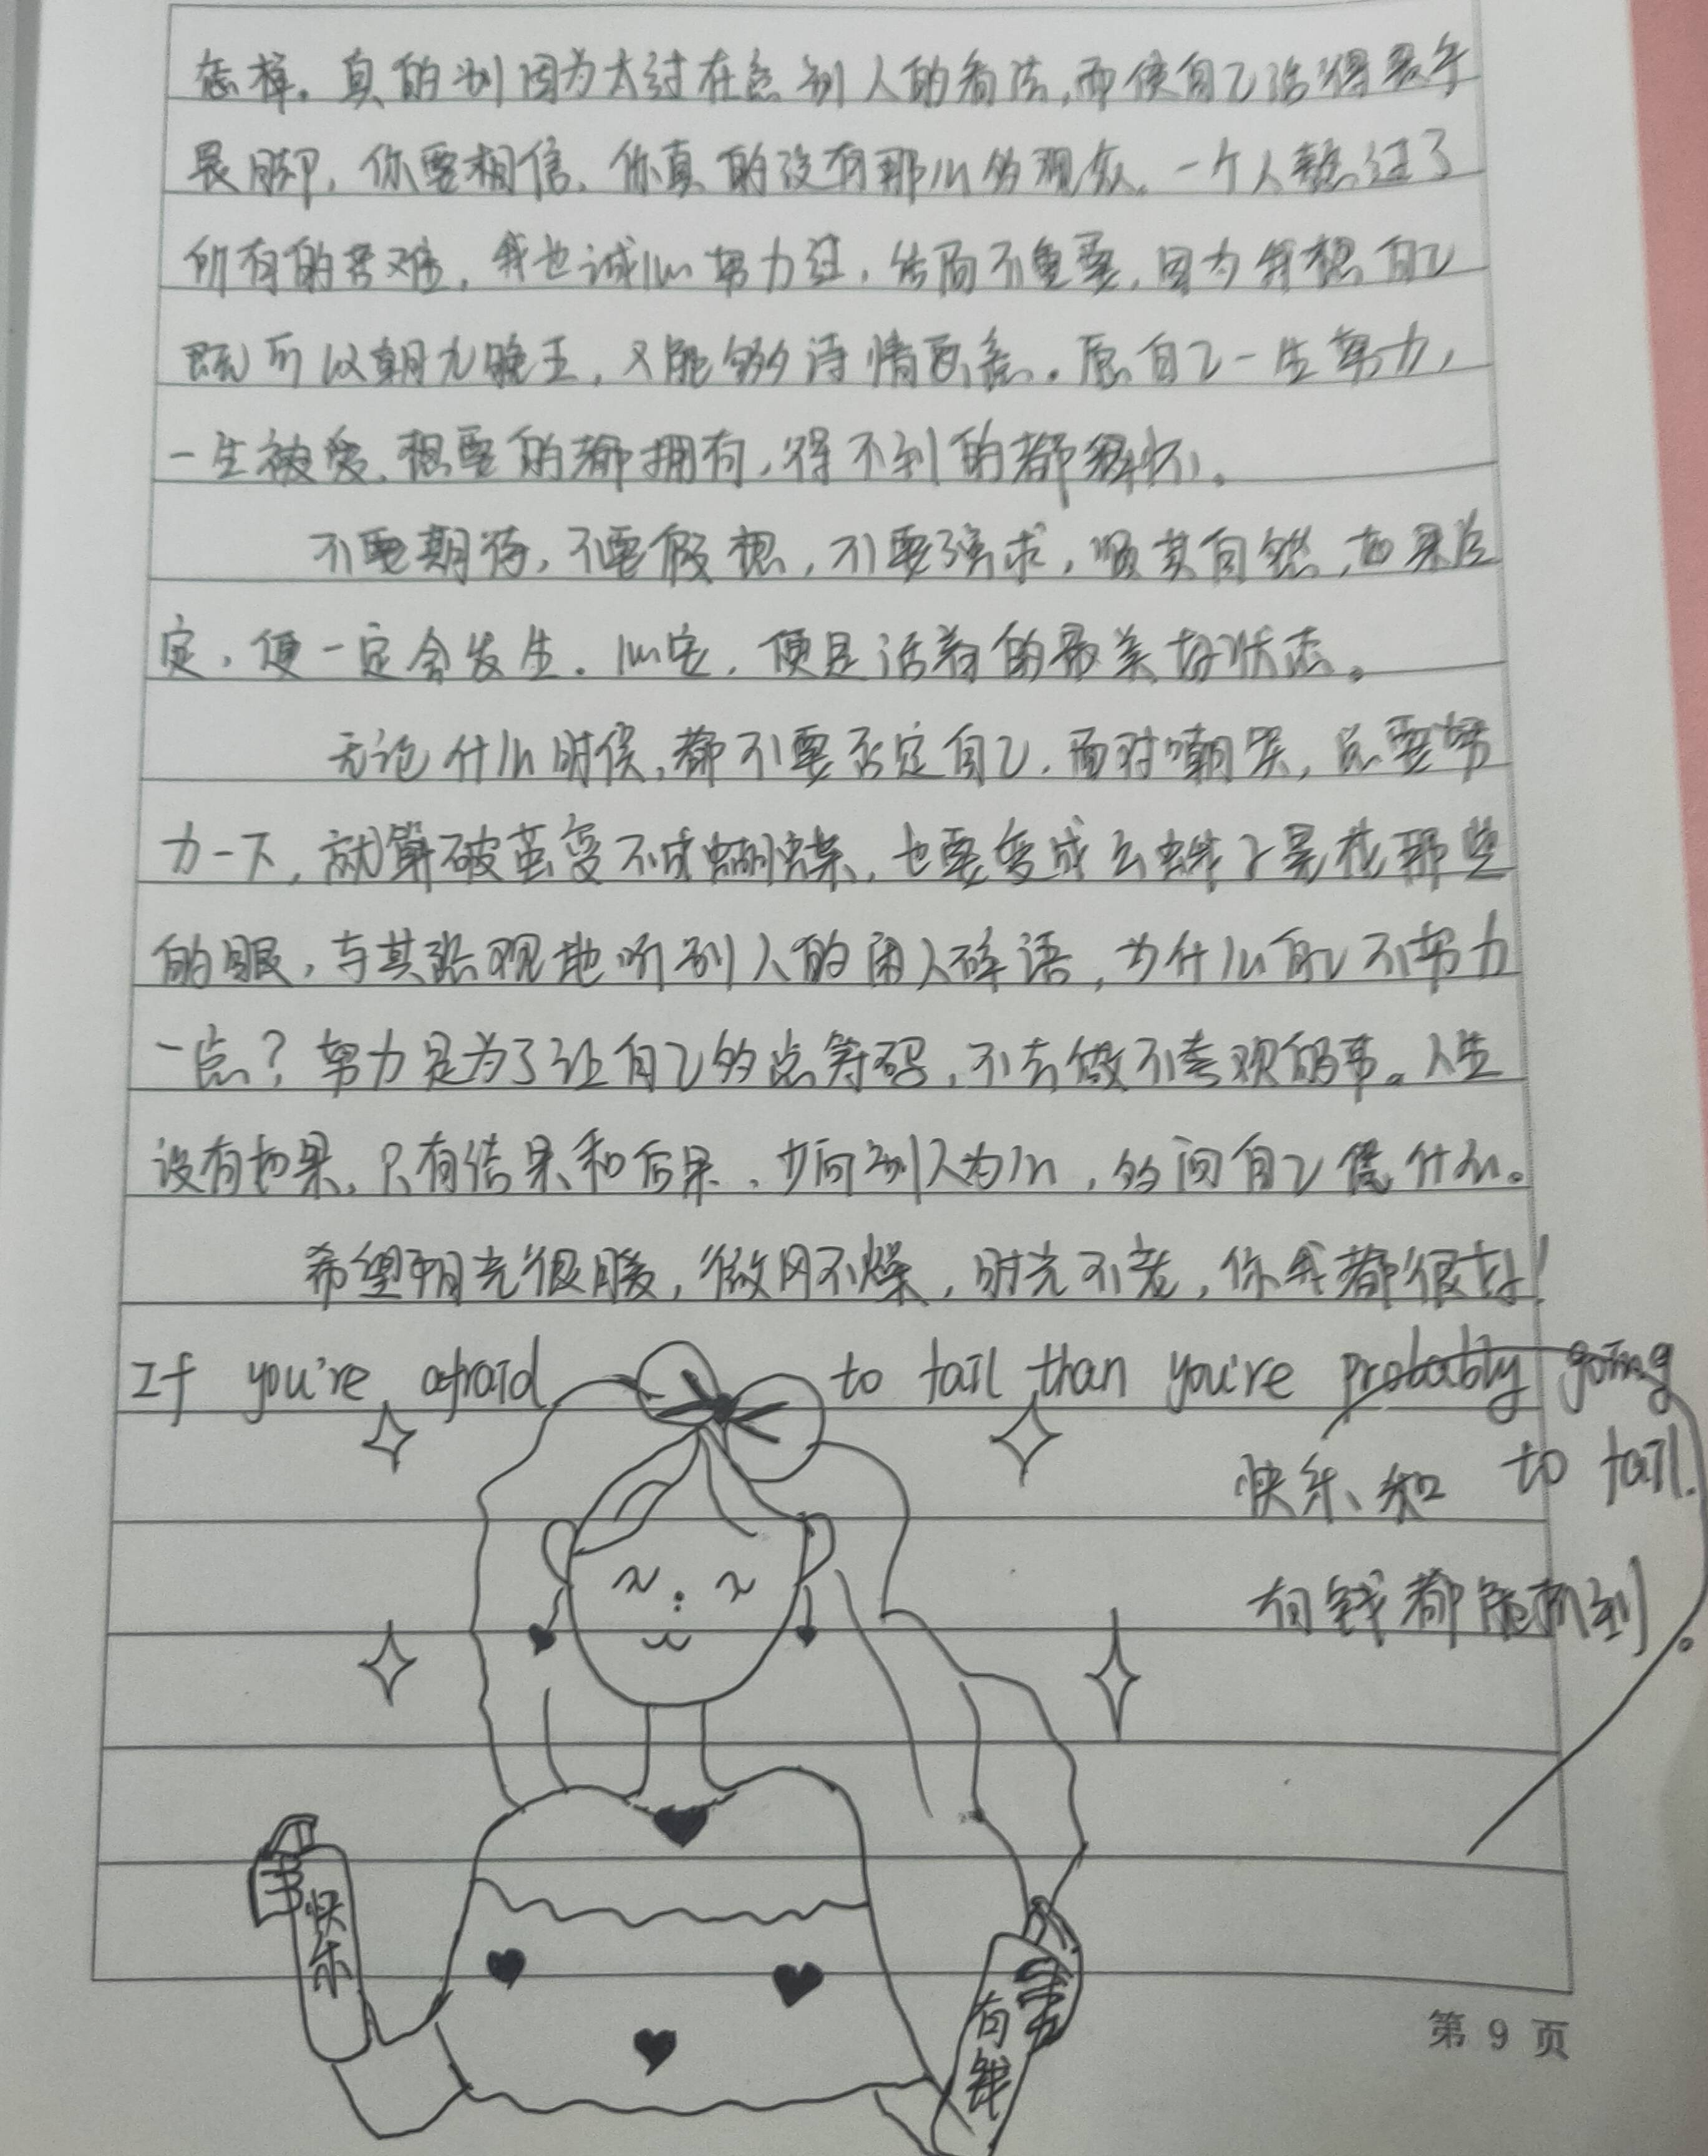 怎样。真的别因为太过在意别人的看法,而使自己活得畏手
畏脚,你要相信,你真的没有那么多观众。一个人熬过了
所有的苦难,我也诚心努力过,结局不重要,因为我想自己
既可以朝九晚五,又能够诗情画意。愿自己一生努力,
一生被爱,想要的都拥有,得不到的都释怀。
不要期待,不要假想,不要强求,顺其自然,如果注
定,便一定会发生。心安,便是活着的最美好状态。
无论什么时候,都不要否定自己,面对嘲笑,总要努
力一下,就算破茧变不成蝴蝶,也要变成幺蛾子晃花那些
的眼,与其悲观地听别人的闲人碎语,为什么自己不努力
一点?努力是为了让自己多点筹码,不去做不喜欢的事。人生
没有如果,只有结果和后果,少问别人为什么,多问自己凭什么。
希望阳光很暖,微风不燥,时光不老,你我都很好!
If you're afraid to tail than you're probably going
to tail.
快乐和
有钱都能抓到。
快乐
有钱
第 9 页